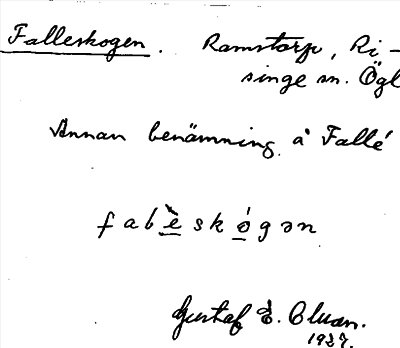 Falleskogen. Ramstorp, Ri-
singe sn. Ögl
Annan benämning å Fallé
f a b è s k ó g ə n
Gustaf E.
1927.